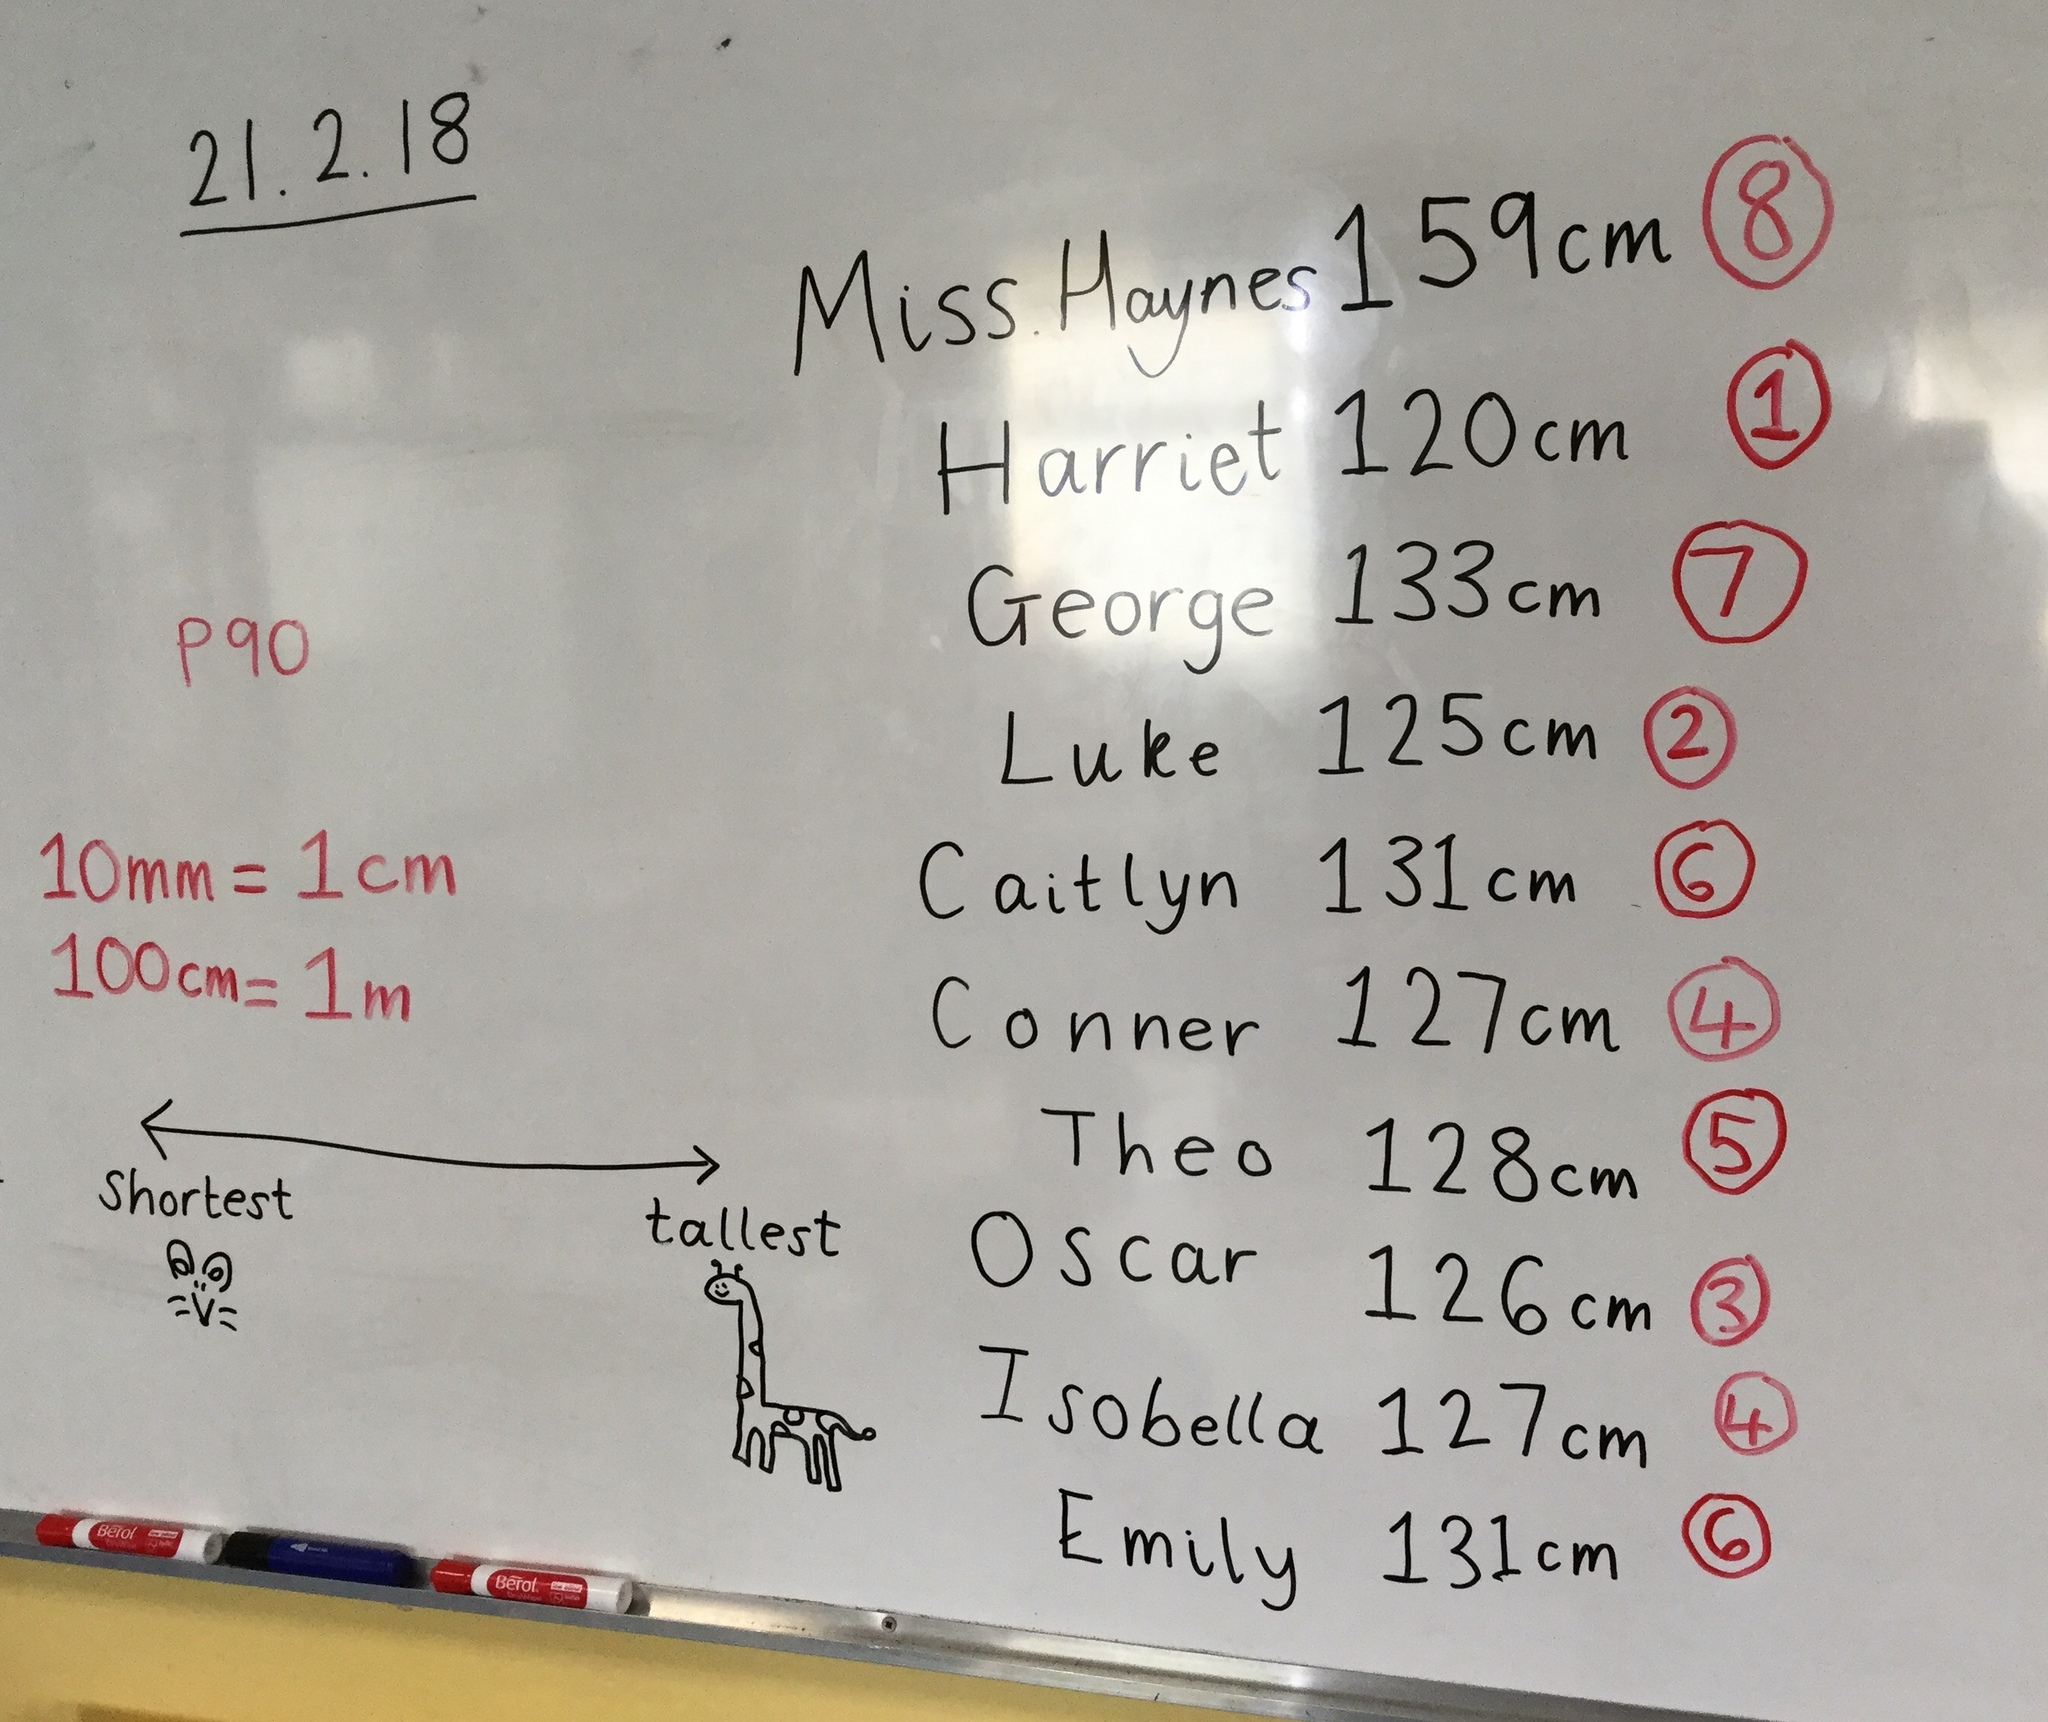 21.2.18
Miss. Haynes 159cm 8
Harriet 120cm 1
George 133cm 7
Luke 125cm 2
Caitlyn 131cm 6
Conner 127cm 4
Theo 128cm 5
Oscar 126cm 3
Isobella 127cm 4
Emily 131cm 6
P90
10mm = 1cm
100cm = 1m
Shortest
tallest
Berol
Berol